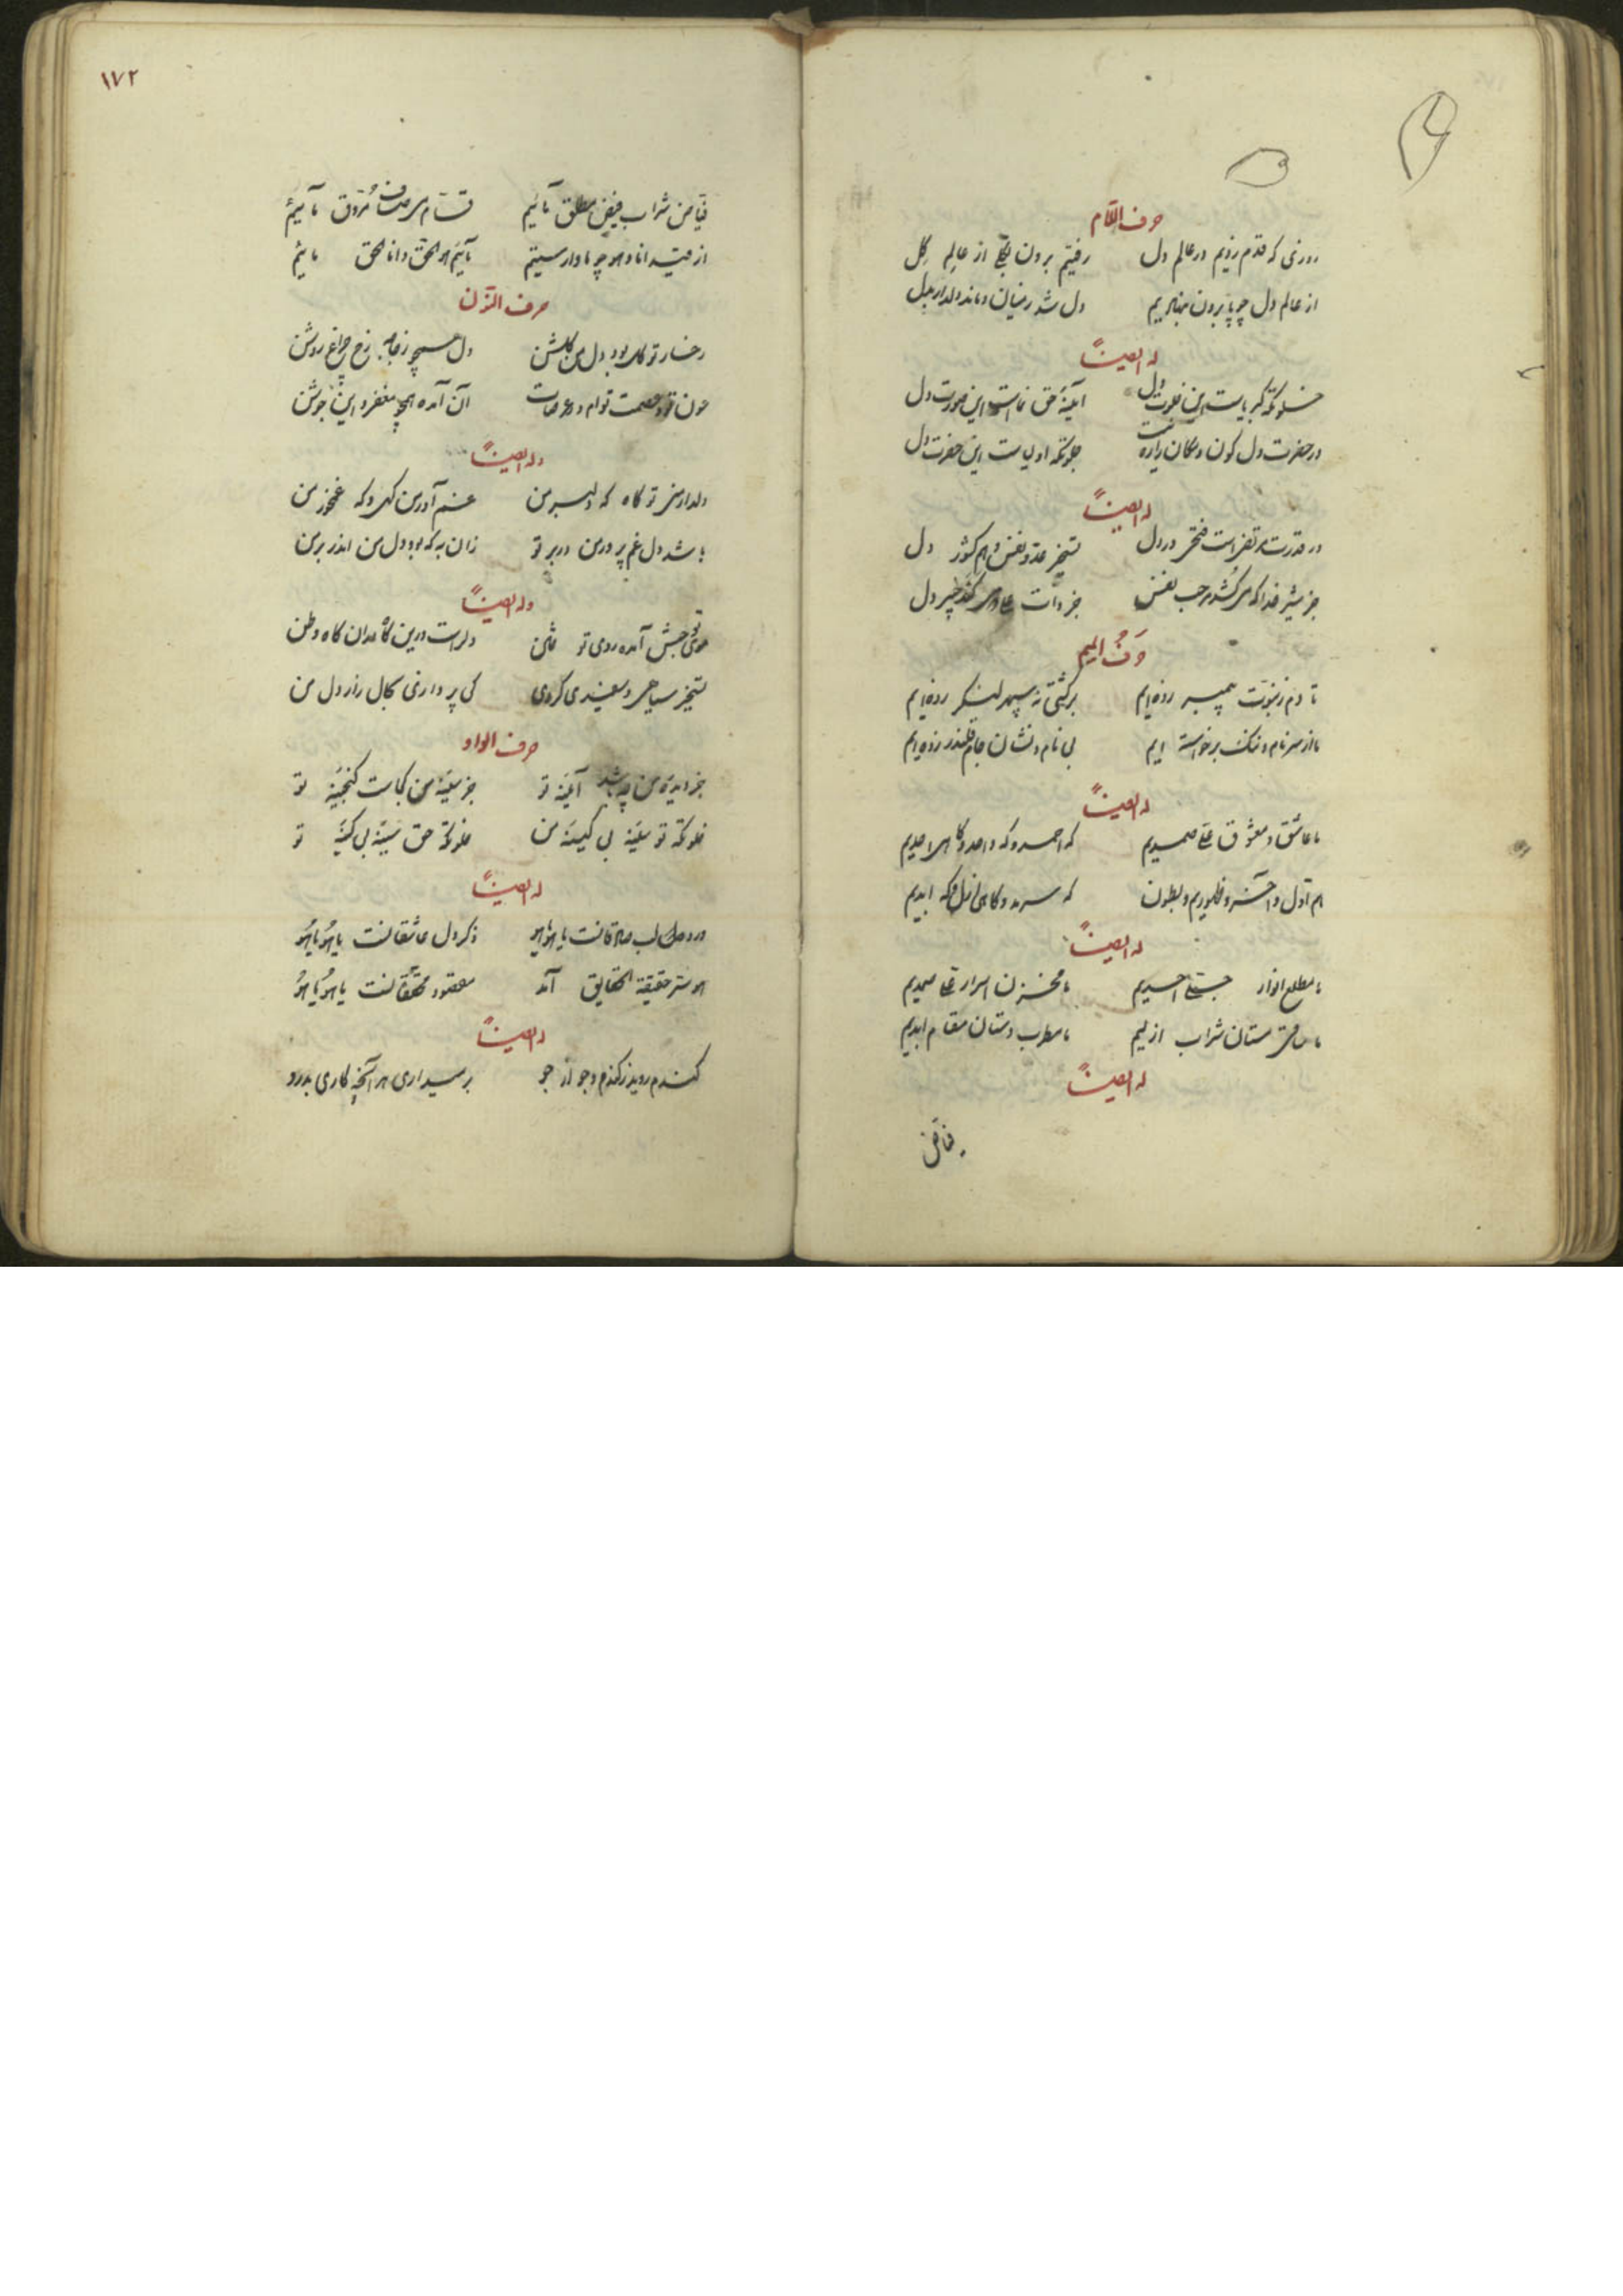 حرف اللام
روزی که قدم زدیم در عالم دل رفتیم برون بکلی از عالم گل
از عالم دل چو پا برون بنهادیم دل شد ز میان و ماند دلدار بدل
له ایضاً
خلوتکه کبریاست این خلوت دل آیینهٔ حق نماست این صورت دل
در حضرت دل کون و مکان را ره نیست جلوتکه اولیاست این حضرت دل
له ایضاً
در قدرت مرتضی است فتح در دل تسخیر عدو نفس و هم کشور دل
جز شیر خدا که می‌کشد مرحب نفس جز ذات علی که می‌کند خیبر دل
حرف المیم
تا دم ز نبوت پیمبر زده‌ایم بر کشتی نه سپهر لنگر زده‌ایم
ما از سر نام و ننک برخواسته ایم بی نام و نشان جام قلندر زده‌ایم
له ایضاً
ما عاشق و معشوق علی صمدیم که احمد و که واحد و کاهی احدیم
هم اول و آخر و ظهوریم و بطون که سرمد و کاهی ازل و که ابدیم
له ایضاً
ما مطلع انوار تجلی احدیم ما مخزن اسرار علی صمدیم
ما ساقی مستان شراب ازلیم ما مطرب دستان مقام ابدیم
له ایضاً
فیاض
۱۷۲
فیاض شراب فیض مطلق مائیم قسام می صاف مروق مائیم
از قید انا و هو چو ما وارستیم مائیم هو الحق و انا الحق مائیم
حرف النون
رخسار تو کل بود دل من کلشن دل همچو زجاجه رخ چراغ روشن
عون تو و عصمت توام در عرصات آن آمده همچو مغفر و این جوشن
وله ایضاً
دلدار منی تو کاه که دلبر من غم آور من کهی و که غمخور من
باشد دل غم پرور من در بر تو زان به که بود دل من اندر بر من
وله ایضاً
موی تو حبش آمده روی تو ختن دلراست درین کاه و در ان کاه وطن
تسخیر سیاهی و سفیدی کردی کی پردازی بحال زار دل من
حرف الواو
جز دیدهٔ من چه باشد آیینهٔ تو جز سینهٔ من کجاست کنجینهٔ تو
خلوتکه تو سینهٔ بی کینهٔ من خلوتکه حق سینهٔ بی کینهٔ تو
له ایضاً
ورد لب صادقانست یا هو یا هو ذکر دل عاشقانست یا هو یا هو
هو سر حقیقة الحقایق آمد مقصود محققانست یا هو یا هو
له ایضاً
کندم روید ز کندم و جو از جو برمیداری هر آنچه کاری بدرو